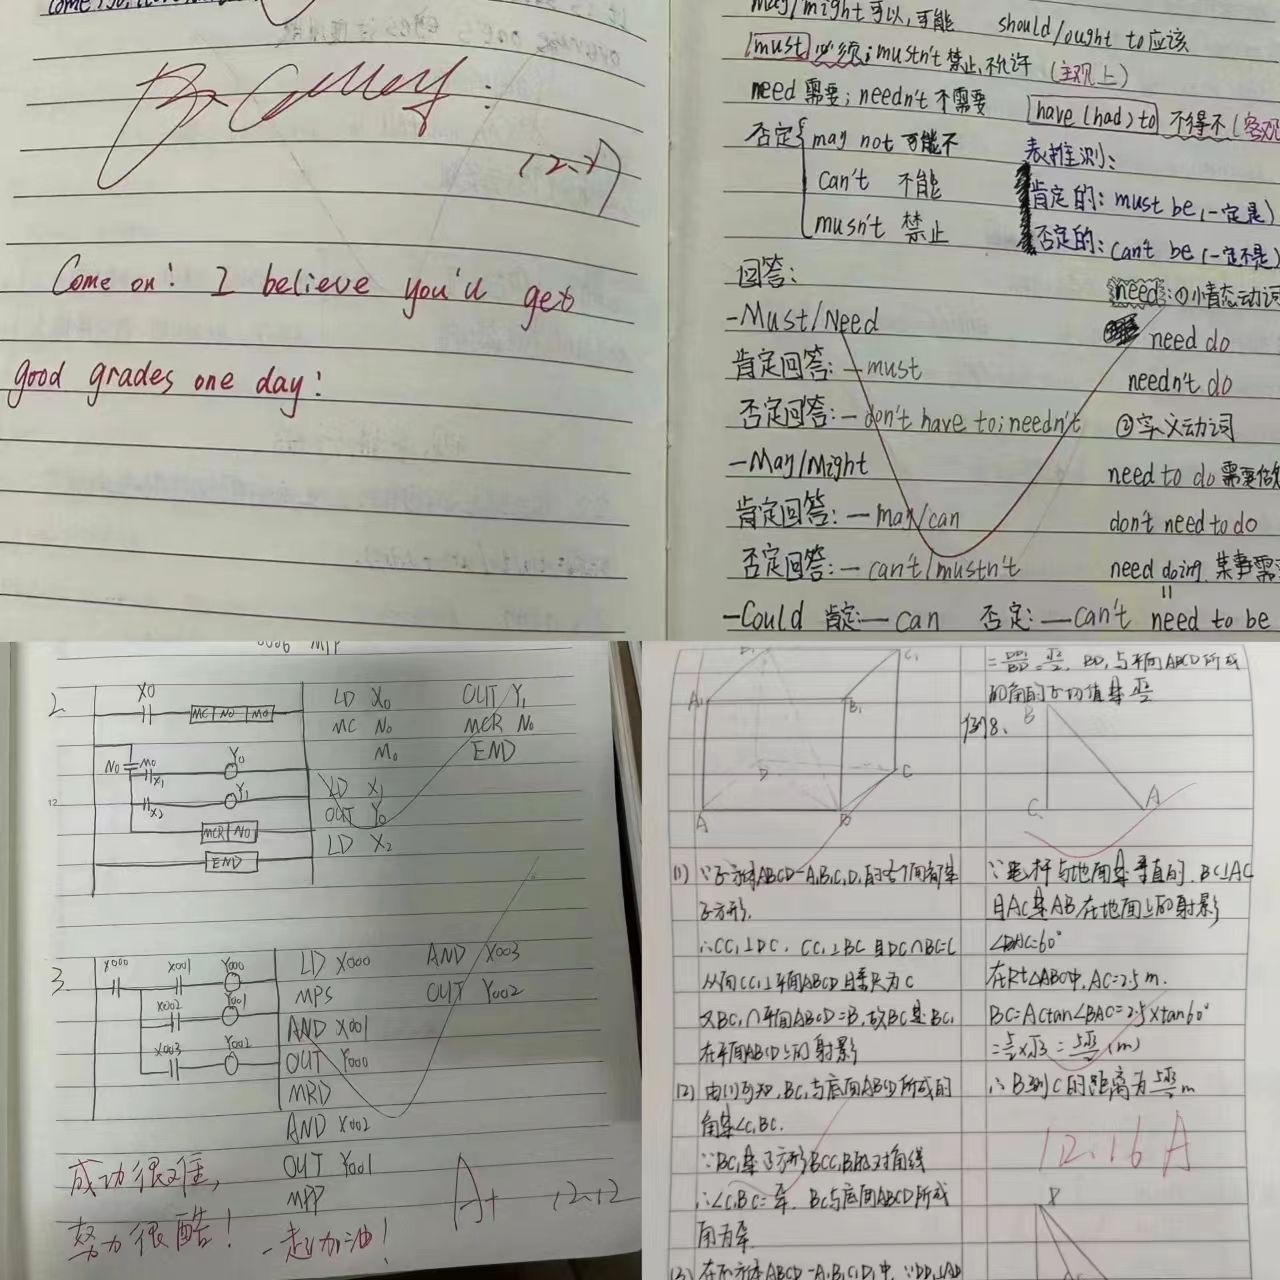 Come on! I believe you'll get
good grades one day!
may/might 可以,可能 should/ought to 应该
must 必须; mustn't 禁止,不允许 (主观上)
need 需要; needn't 不需要
have (had) to 不得不 (客观
否定 may not 可能不
can't 不能
musn't 禁止
表推测:
肯定的: must be (一定是)
否定的: can't be (一定不是)
回答:
-Must/Need
肯定回答: — must
否定回答: — don't have to; needn't
-May/Might
肯定回答: — may/can
否定回答: — can't/mustn't
-Could 肯定: — can 否定: — can't
need: ①情态动词
need do
needn't do
②实义动词
need to do 需要做
don't need to do
need doing 某事需
need to be
0006 MPP
2
X0
MC N0 M0
N0 M0
X1 Y0
X2 Y1
MCR N0
END
LD X0 OUT Y1
MC N0 MCR N0
M0 END
LD X1
OUT Y0
LD X2
3
X000 X001 Y000
X002 Y001
X003 Y002
LD X000 AND X003
MPS OUT Y002
AND X001
OUT Y000
MRD
AND X002
OUT Y001
MPP
成功很难,
努力很酷! 一起加油!
A+ 12.12
A1 B1 C1
D C
A B
(1) ∵正方体ABCD-A1B1C1D1的六个面都是
正方形.
∴CC1⊥DC, CC1⊥BC 且DC∩BC=C
从而CC1⊥平面ABCD且垂足为C
又BC1∩平面ABCD=B, 故BC是BC1
在平面ABCD上的射影
(2) 由(1)可知,BC1与底面ABCD所成的
角是∠C1BC.
∵BC1是正方形BCC1B1的对角线
∴∠C1BC= , BC1与底面ABCD所成
角为
(3) 在正方体ABCD-A1B1C1D1中, ∵DD1⊥AD
BD1与平面ABCD所成
的角的正切值是
例8、
B
C A
∵ 杆与地面是垂直的, BC⊥AC
且AC是AB在地面上的射影
∠BAC=60°
在Rt△ABC中, AC=2.5 m.
BC=ACtan∠BAC=2.5×tan60°
=5/2×√3=5√3/2 (m)
∴B到C的距离为5√3/2 m
12.16 A
P